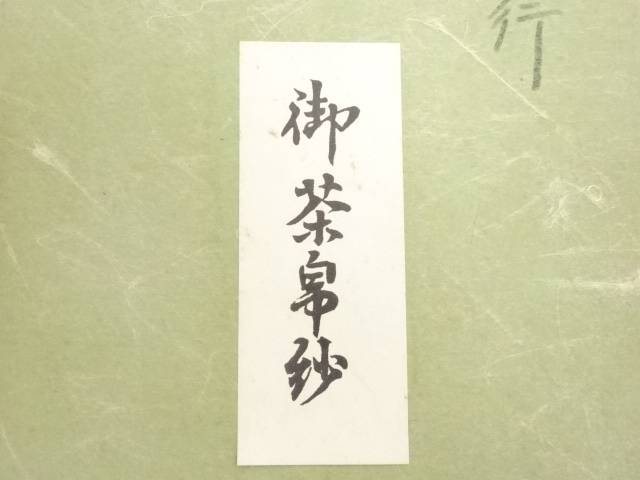 行
御茶帛紗